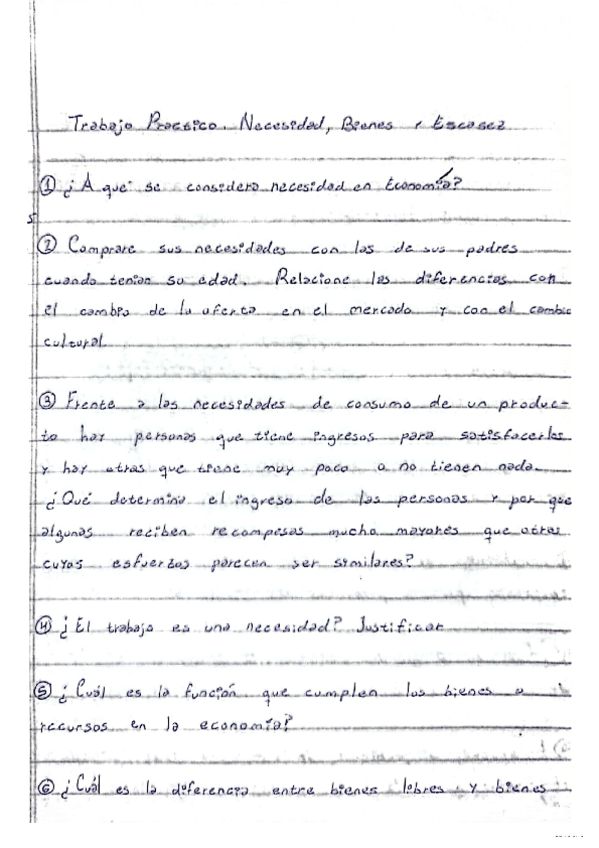 Trabajo Practico. Necesidad, Bienes y Escasez
① ¿A que se considera necesidad en Economía?
② Comprare sus necesidades con las de sus padres
cuando tenian su edad. Relacione las diferencias con
el cambio de la oferta en el mercado y con el cambio
cultural
③ Frente a las necesidades de consumo de un produc-
to hay personas que tiene ingresos para satisfacerlas
y hay otras que tiene muy poco o no tienen nada.
¿Qué determina el ingreso de las personas y por que
algunas reciben recompesas mucho mayores que otras
cuyos esfuerzos parecen ser similares?
④ ¿El trabajo es una necesidad? Justificar
⑤ ¿Cuál es la función que cumplen los bienes o
recursos en la economía?
⑥ ¿Cuál es la diferencia entre bienes libres y bienes